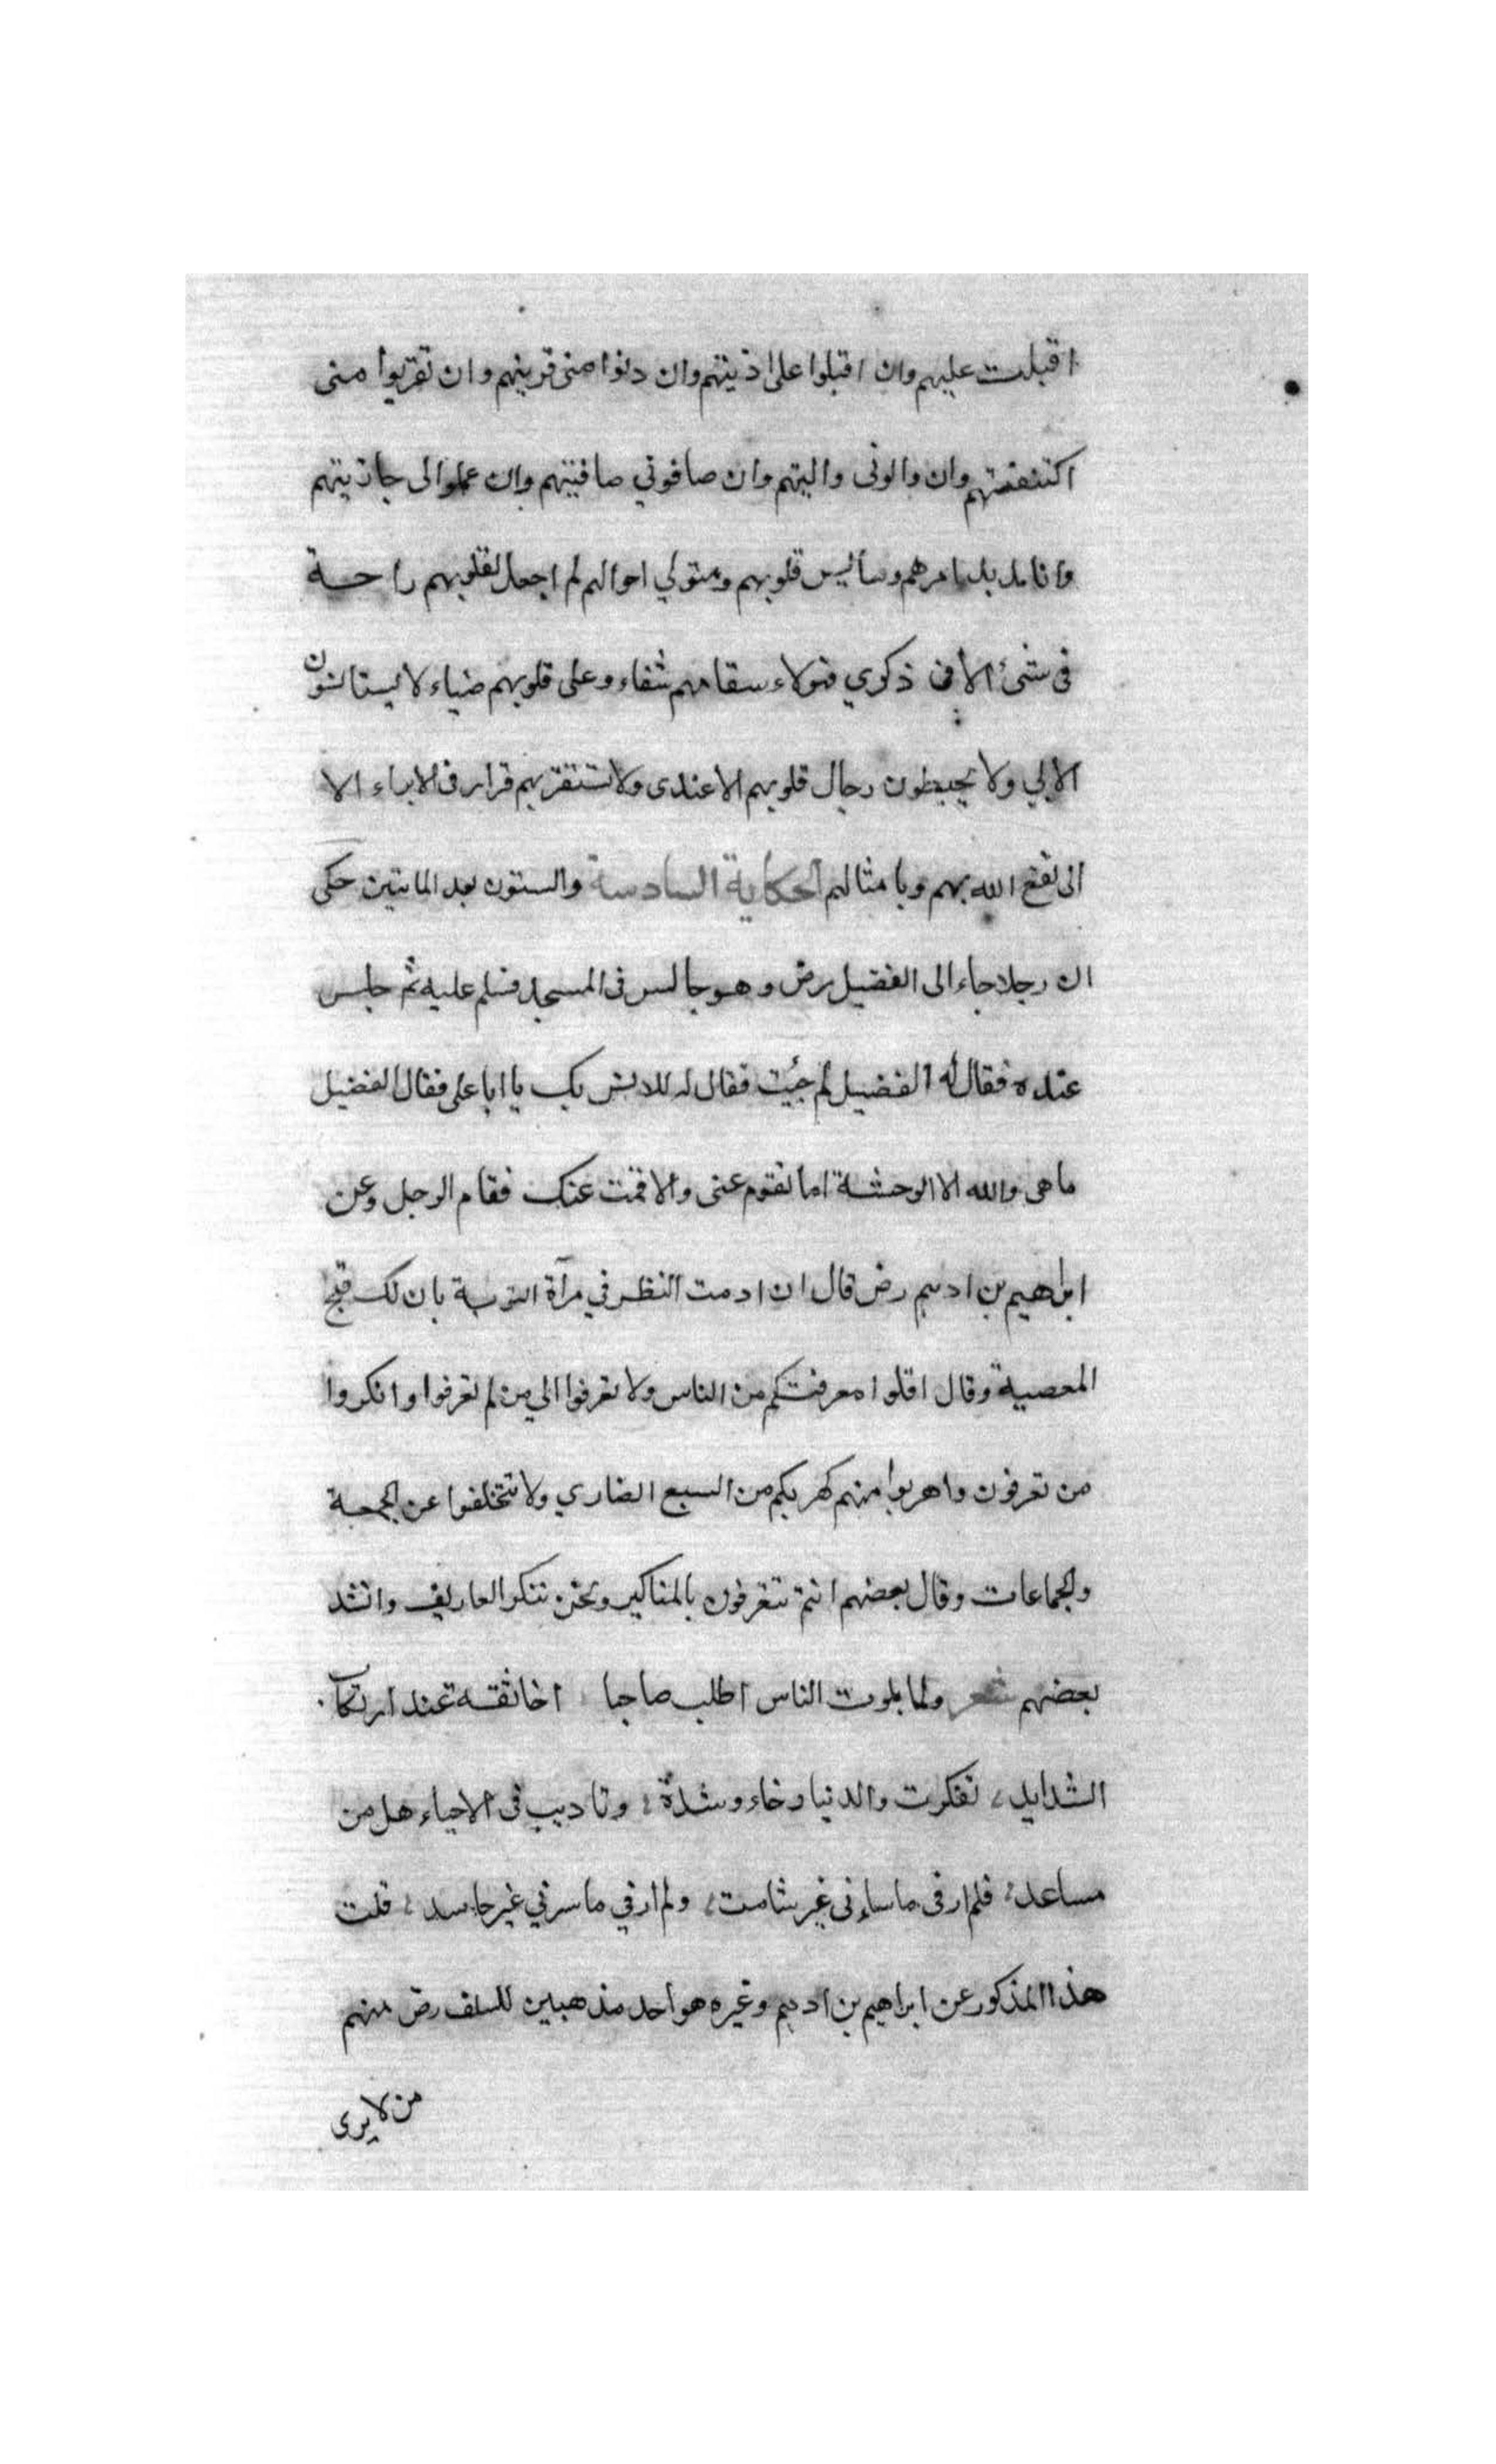 اقبلت عليهم وان اقبلوا على اذنيتهم وان دنوا منى قربتهم وان تقربوا منى
اكتنفتهم وان والونى واليتهم وان صافونى صافيتهم وان عملوا لى جازيتهم
وانا مدبر امرهم وسائس قلوبهم ومتولي احوالهم لم اجعل لقلوبهم راحة
فى شئ الا فى ذكري فهولاء سقامهم شفاء وعلى قلوبهم ضياء لا يستانسون
الا بي ولا يحيطون رحال قلوبهم الا عندى ولا تستقر بهم قرار فى الا
الى نفع الله بهم وبامثالهم الحكاية السادسة والستون بعد المايتين حكى
ان رجلا جاء الى الفضيل رض وهو جالس فى المسجد فسلم عليه ثم جلس
عنده فقال له الفضيل لم جئت فقال له للانس بك يا ابا على فقال الفضيل
ما هى والله الا الوحشة اما تقوم عنى والا قمت عنك فقام الرجل وعن
ابراهيم بن ادهم رض قال ان ادمت النظر في مرآة التوبة بان لك قبح
المعصية وقال اقلوا معرفتكم من الناس ولا تعرفوا الى من لم تعرفوا وانكروا
من تعرفون واهربوا منهم كهربكم من السبع الضاري ولا تتخلفوا عن الجمعة
والجماعات وقال بعضهم انتم تتعرفون بالمناكير ونحن ننكر المعاريف وانشد
بعضهم شعر ولما بلوت الناس اطلب صاحبا اخا ثقة عند ارتكاب
الشدايد، تفكرت والدنيا رخاء وشدة، وناديت فى الاحياء هل من
مساعد، فلم ار فى ما ساءنى غير شامت، ولم ار في ما سرني غير حاسد، قلت
هذا المذكور عن ابراهيم بن ادهم وغيره هو احد مذهبين للسلف رض منهم
من لا يرى